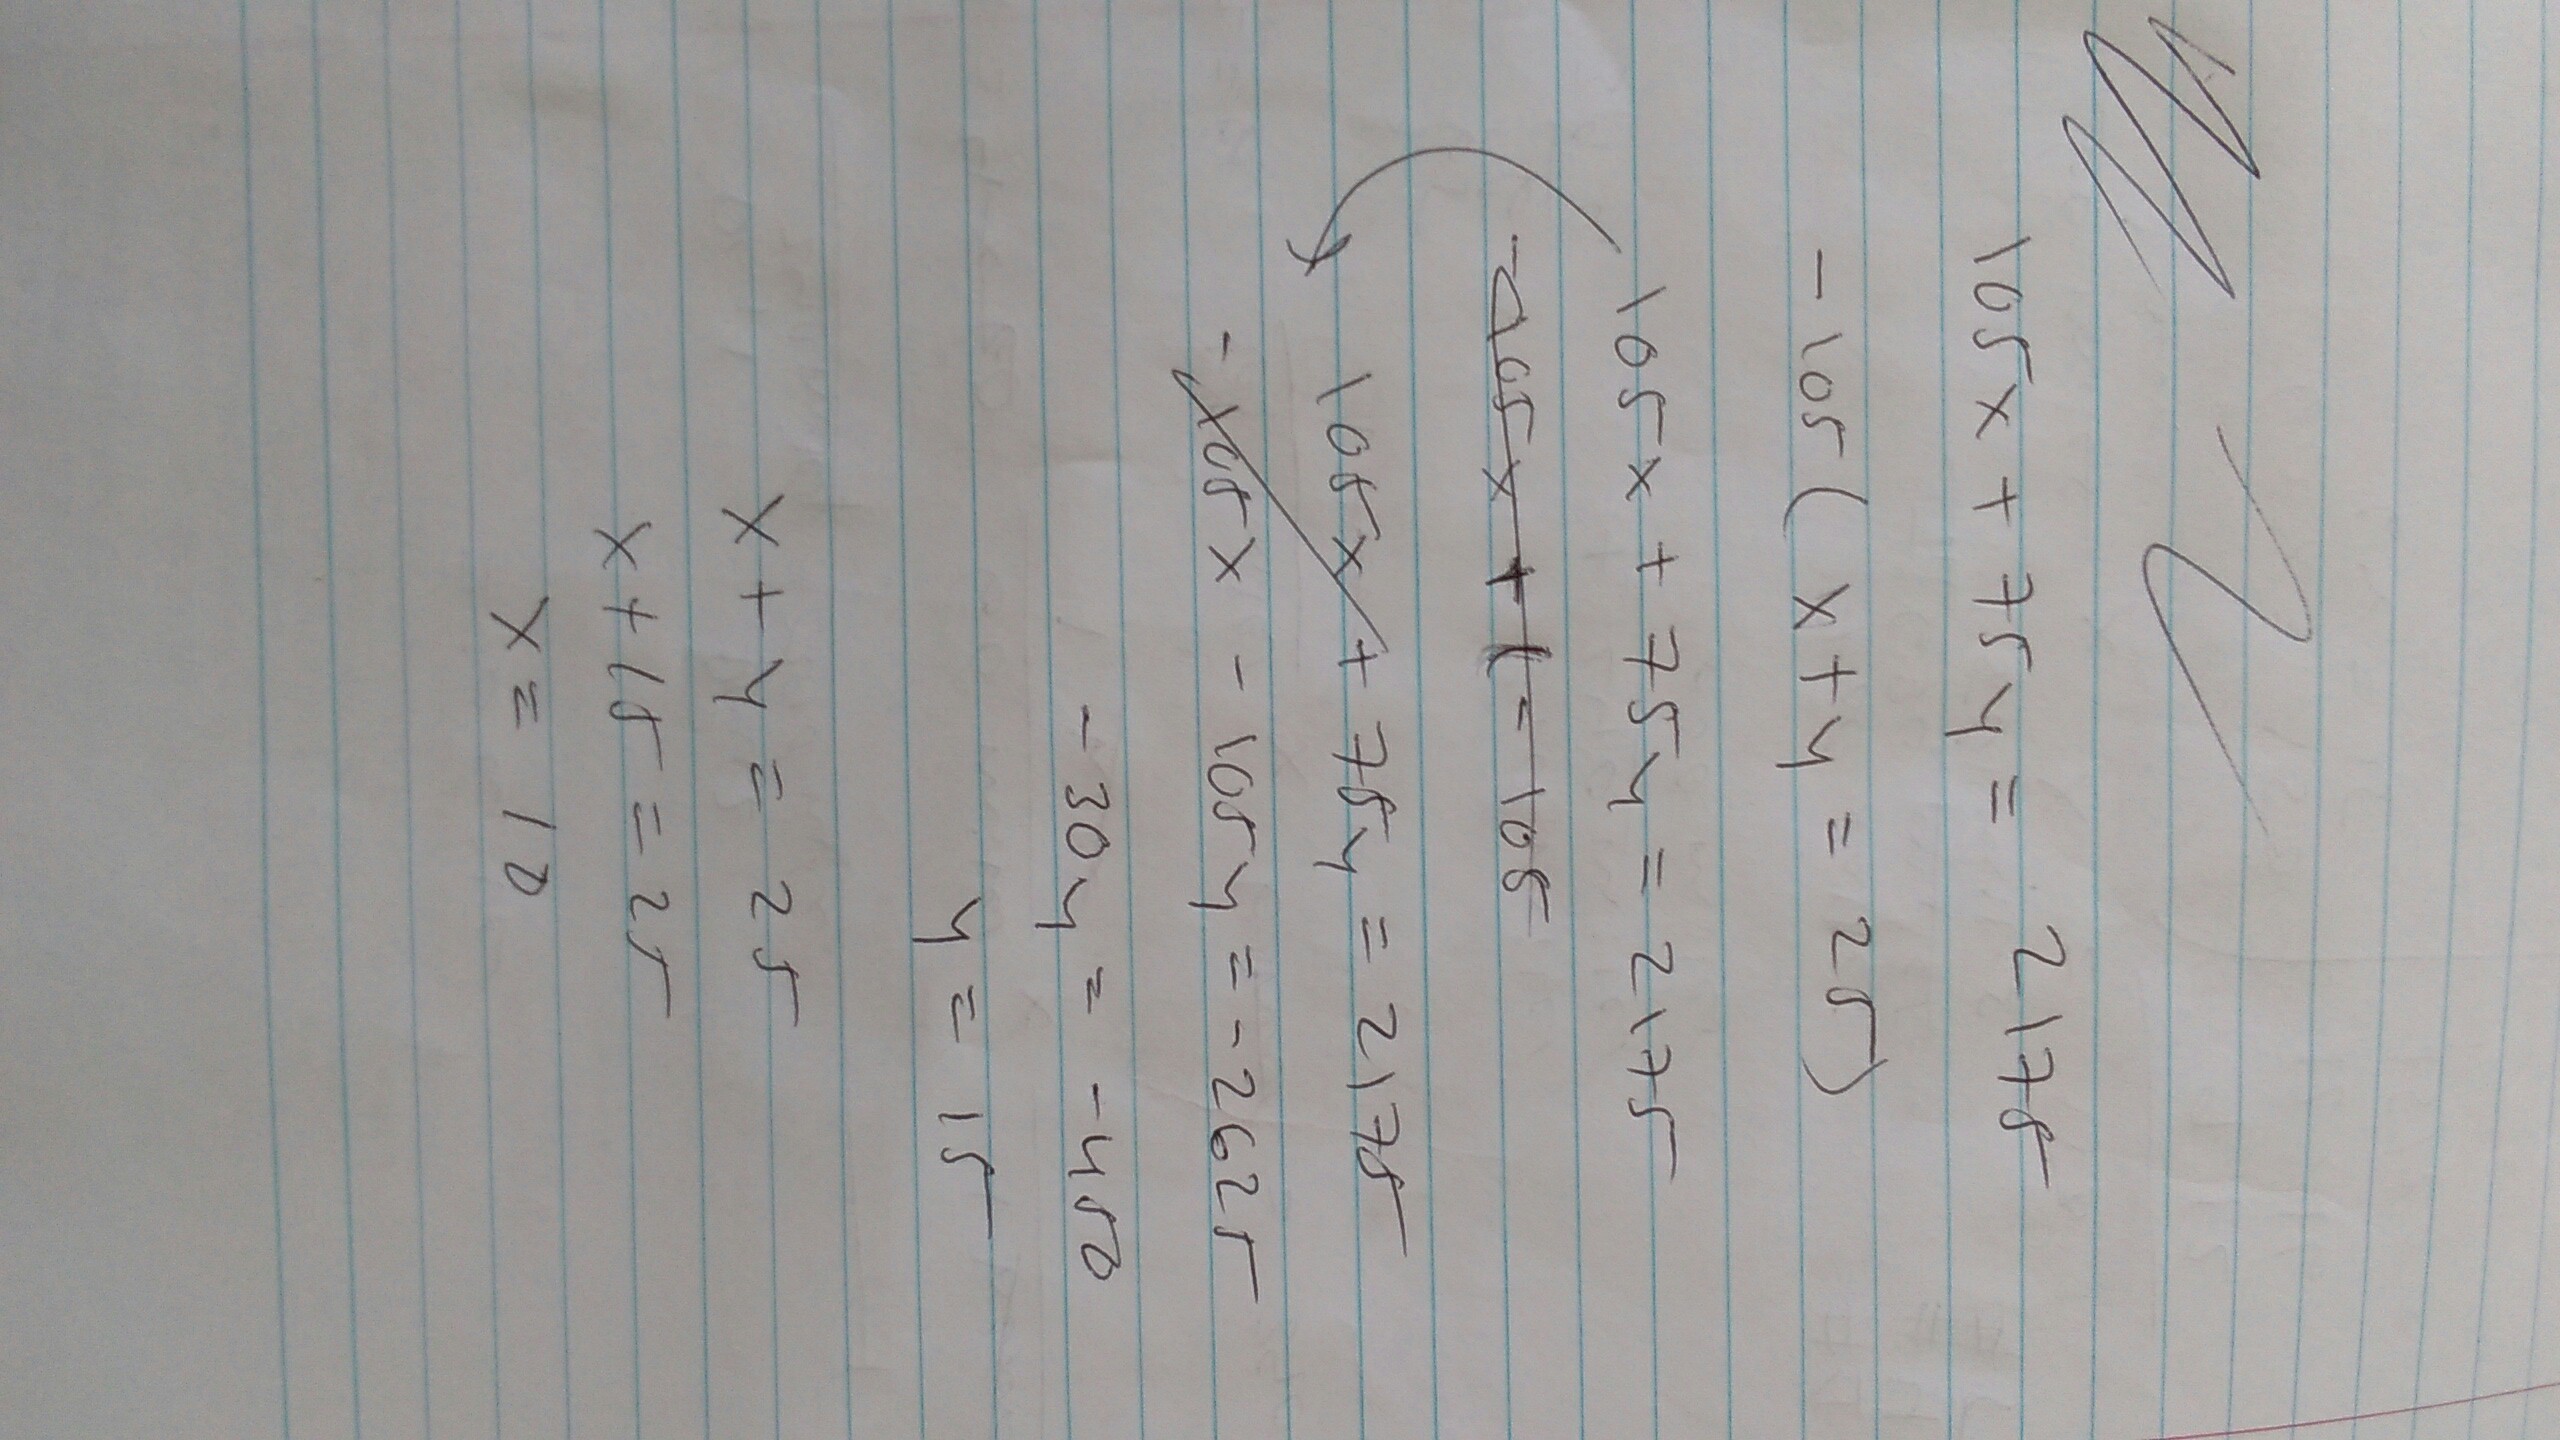 105x + 75y = 2175
-105(x+y = 25)
105x + 75y = 2175
105x + 75y = 2175
-105x - 105y = -2625
-30y = -450
y = 15
x+y = 25
x+15 = 25
x = 10